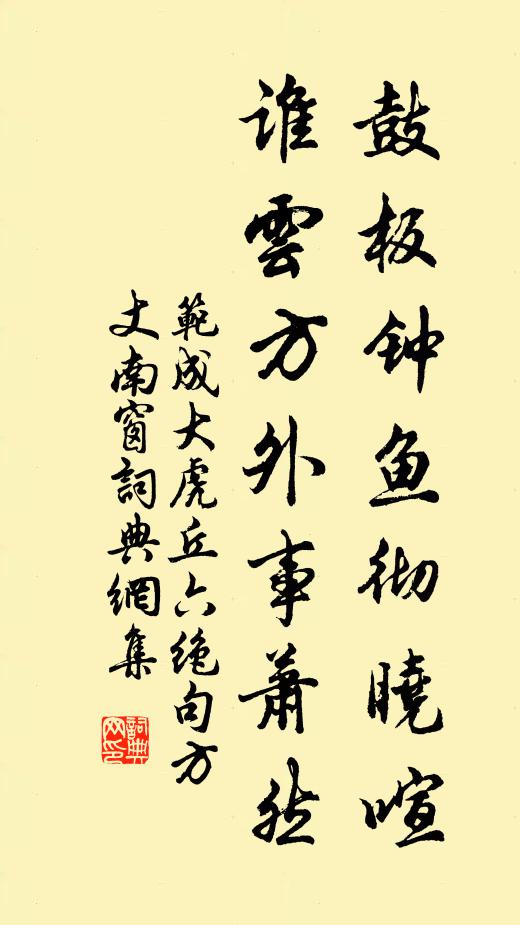 鼓板钟鱼彻晓喧
谁雲方外事萧然
範成大虎丘六绝句方
丈南窗詞典網集
詞典网印